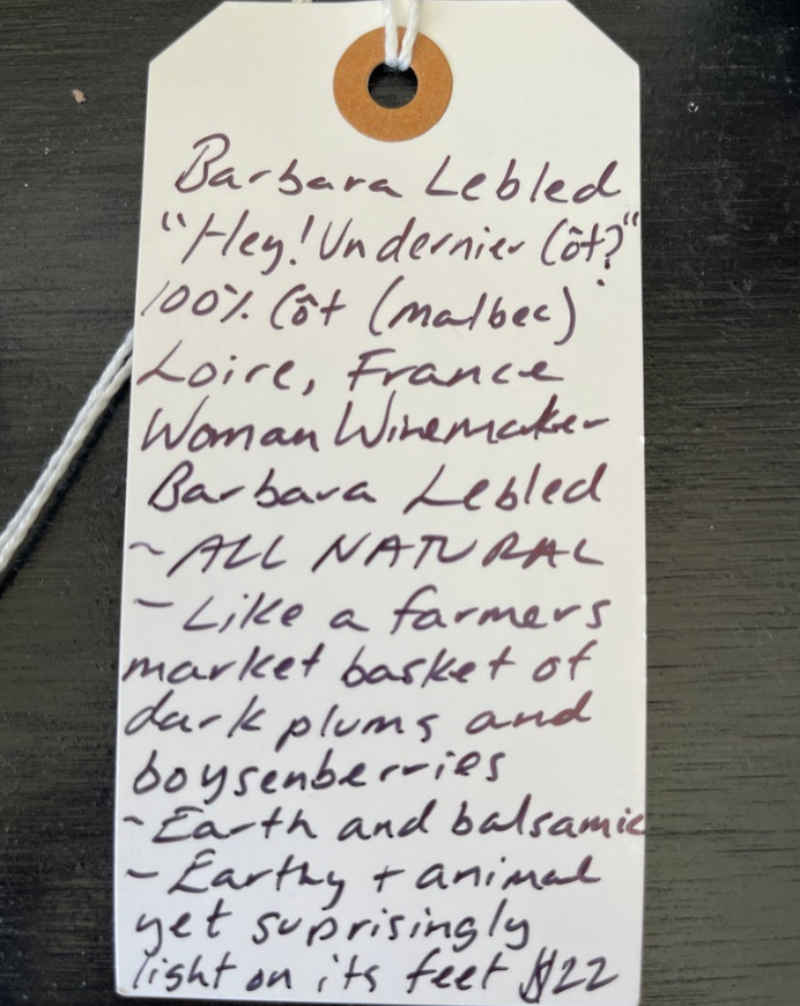 Barbara Lebled
"Hey! Un dernier Côt?"
100% Côt (malbec)
Loire, France
Woman Winemaker
Barbara Lebled
~ ALL NATURAL
- Like a farmers
market basket of
dark plums and
boysenberries
- Earth and balsamic
- Earthy + animal
yet suprisingly
light on its feet $22